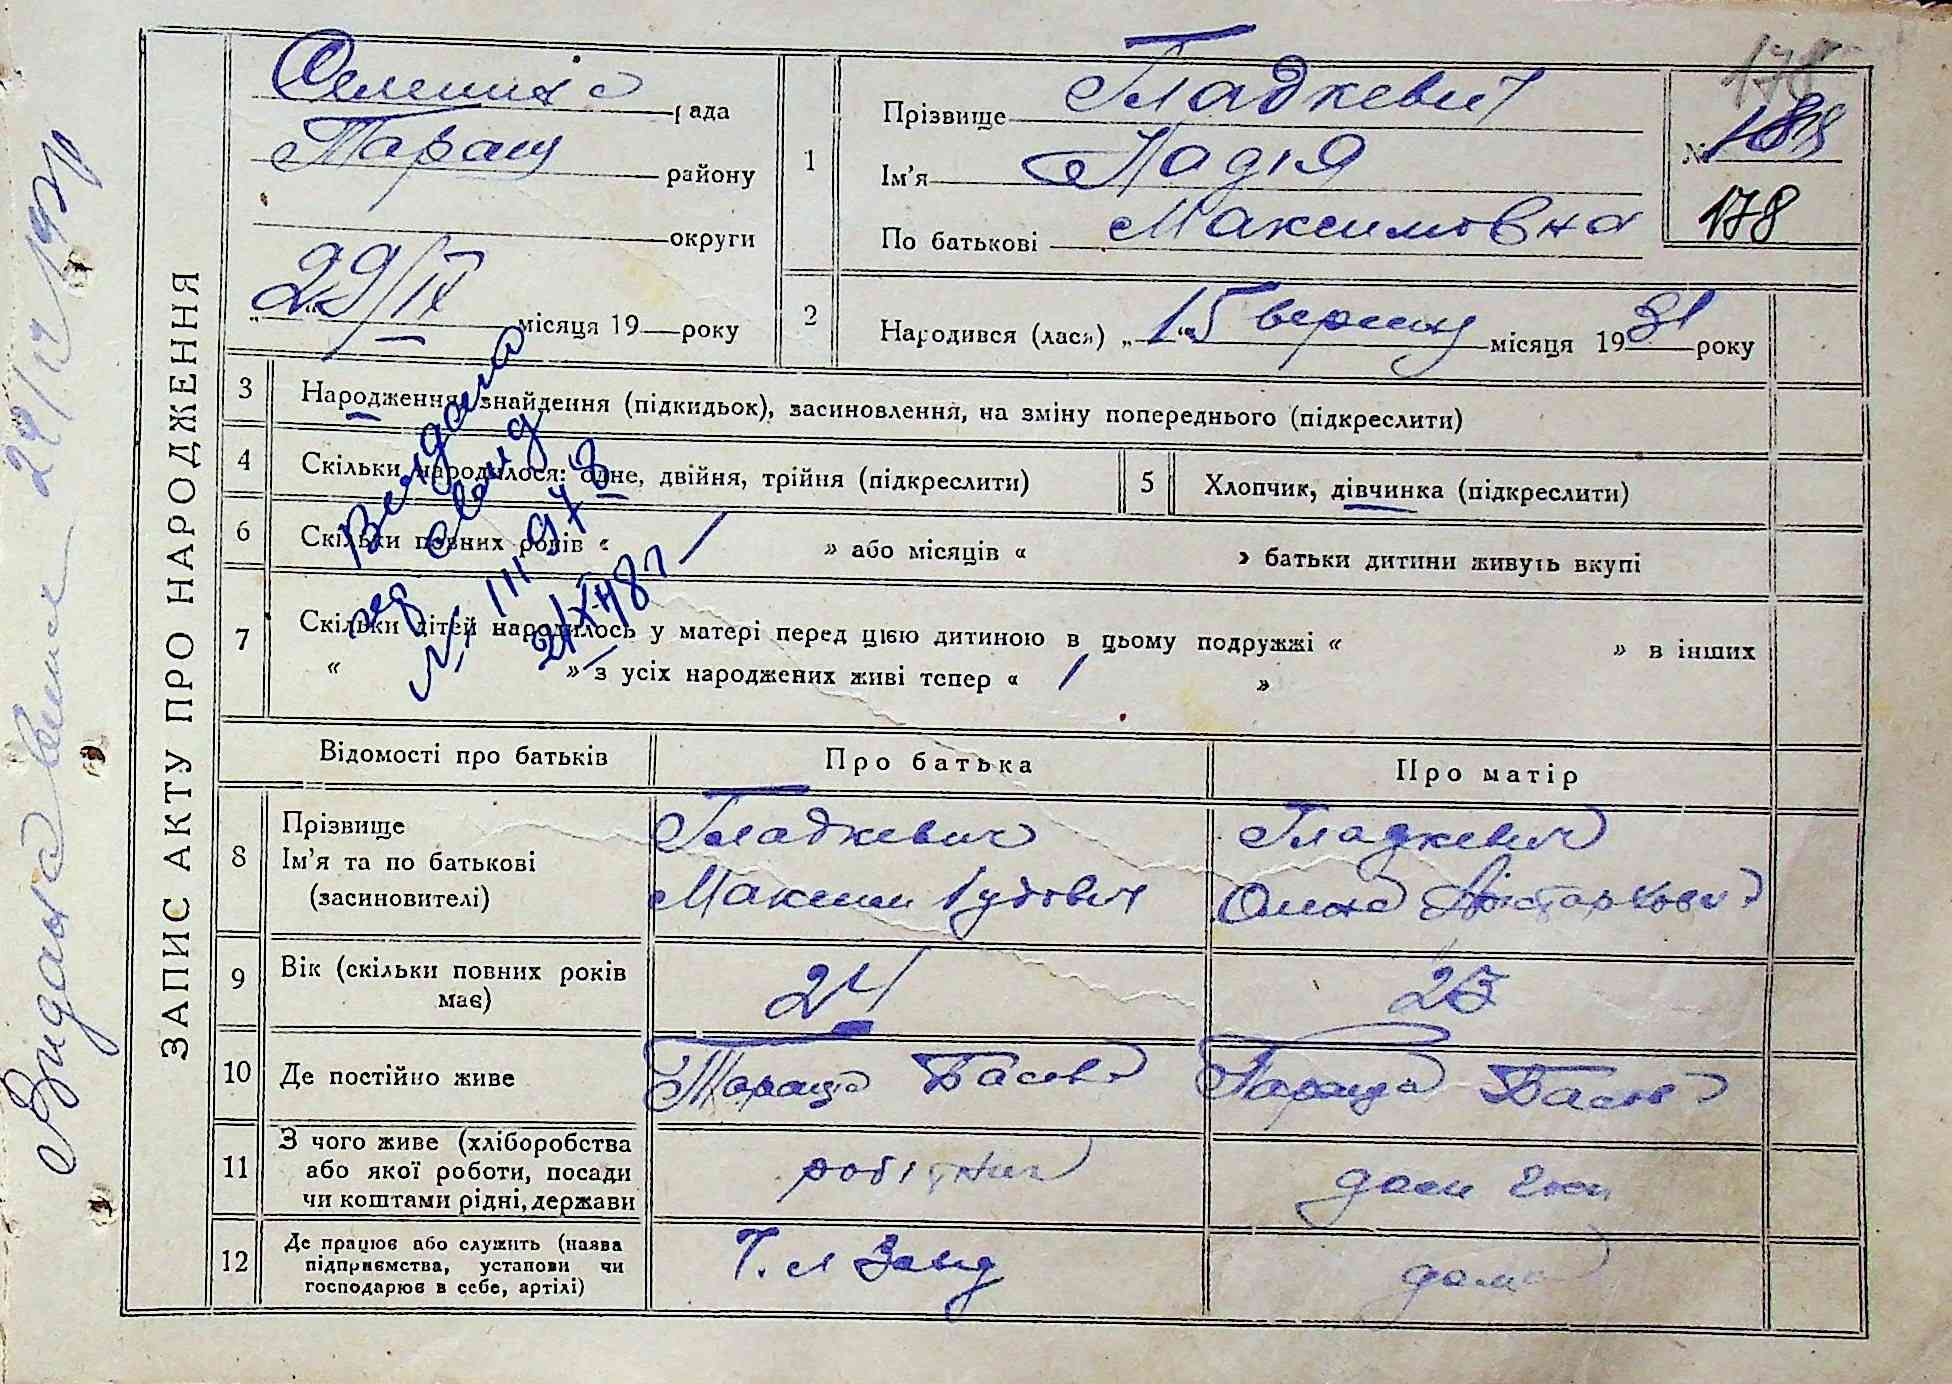 ЗАПИС АКТУ ПРО НАРОДЖЕННЯ
Селищна рада
Таращ району
округи
„29/IX“ місяця 19 року
1
Прізвище Гладкевич
Ім'я Надія
По батькові Максимовна
178
№
178
2
Народився (лась) „15“ вересня місяця 1931 року
3 Народження, знайдення (підкидьок), засиновлення, на зміну попереднього (підкреслити)
4 Скільки народилося: одне, двійня, трійня (підкреслити)
5 Хлопчик, дівчинка (підкреслити)
6 Скільки повних років « » або місяців « » батьки дитини живуть вкупі
7 Скільки дітей народилось у матері перед цією дитиною в цьому подружжі « » в інших
« » з усіх народжених живі тепер « 1 »
Відомості про батьків
Про батька
Про матір
8 Прізвище
Ім'я та по батькові
(засиновителі)
Гладкевич
Максим
Гладкевич
Олена
9 Вік (скільки повних років
має)
24
23
10 Де постійно живе
Тараща
Тараща
11 З чого живе (хліборобства
або якої роботи, посади
чи коштами рідні, держави
робітник
дом госп
12 Де працює або служить (назва
підприємства, установи чи
господарює в себе, артілі)
дома